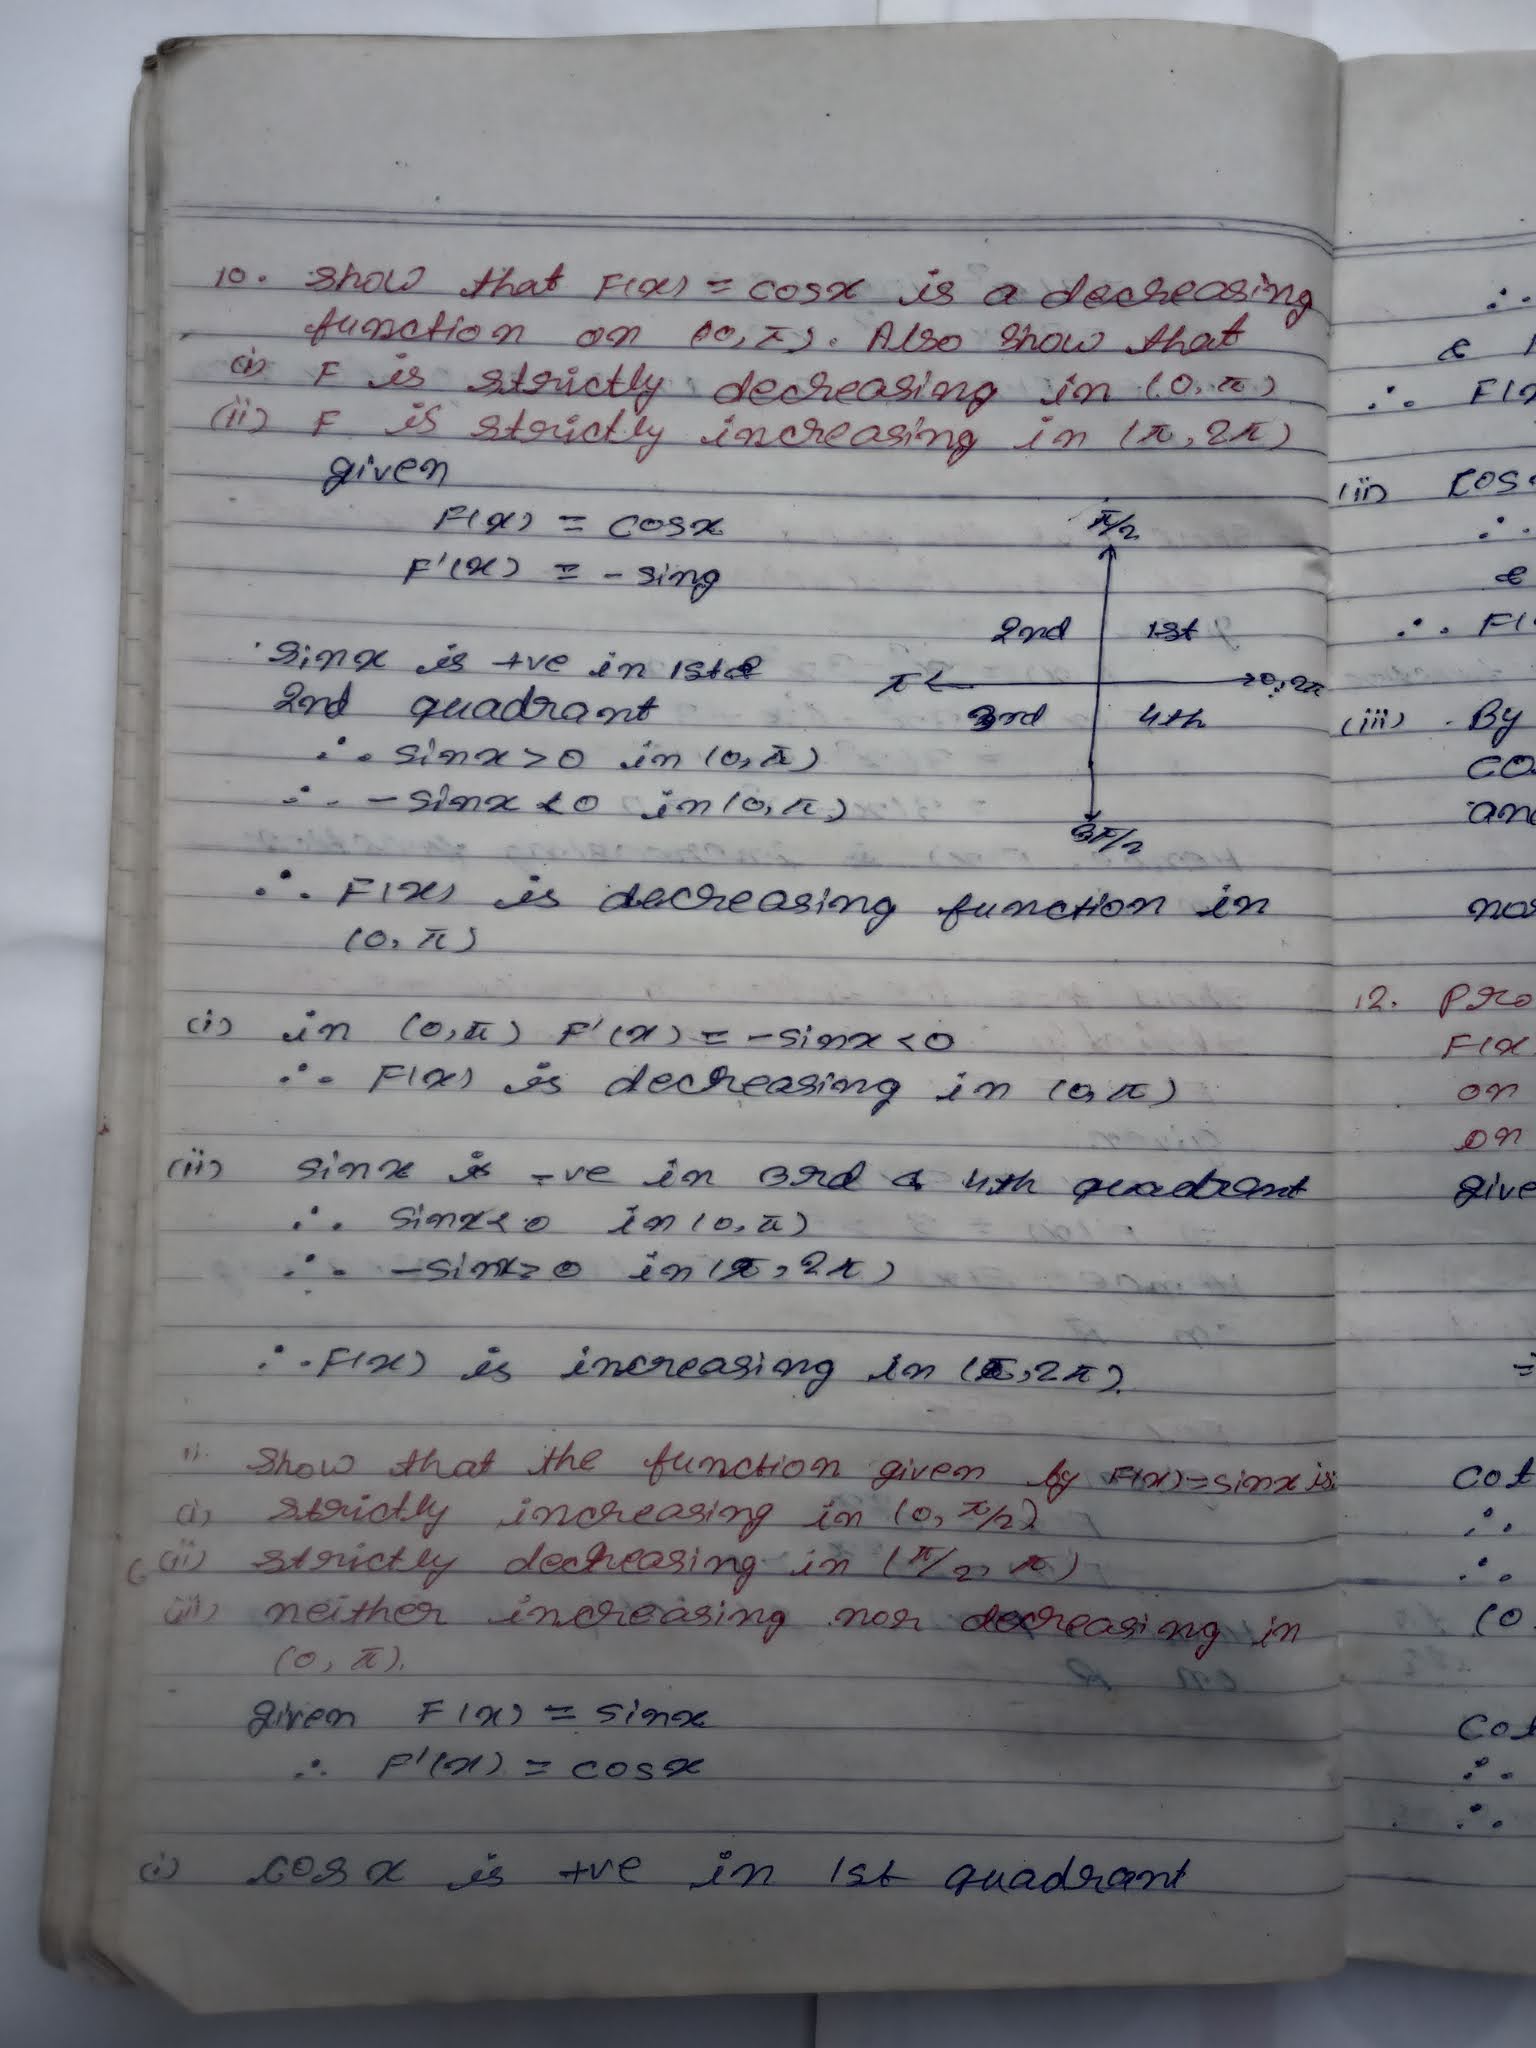 10. Show that F(x) = cosx is a decreasing
function on (0, π). Also show that
(i) F is strictly decreasing in (0, π)
(ii) F is strictly increasing in (π, 2π)
given
F(x) = cosx
F'(x) = - sing
π/2
2nd 1st
π 0, 2π
3rd 4th
3π/2
sinx is +ve in 1st &
2nd quadrant
∴ sinx > 0 in (0, π)
∴ - sinx < 0 in (0, π)
∴ F(x) is decreasing function in
(0, π)
(i) in (0, π) F'(x) = - sinx < 0
∴ F(x) is decreasing in (0, π)
(ii) sinx is -ve in 3rd & 4th quadrant
∴ sinx < 0 in (0, π)
∴ - sinx > 0 in (π, 2π)
∴ F(x) is increasing in (π, 2π).
11. Show that the function given by F(x) = sinx is:
(i) strictly increasing in (0, π/2)
(ii) strictly decreasing in (π/2, π)
(iii) neither increasing nor decreasing in
(0, π).
given F(x) = sinx
∴ F'(x) = cosx
(i) cosx is +ve in 1st quadrant
∴
&
∴ F(x
(ii) cos
∴
&
∴ F(
(iii) By
co
and
12. Pro
F(x
on
on
give
=
cot
∴
∴
(0
cot
∴
∴